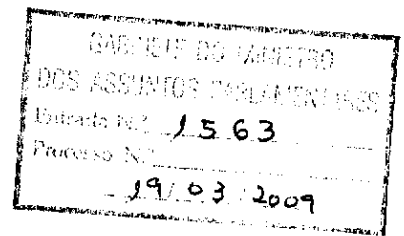 GABINETE DO MINISTRO
DOS ASSUNTOS PARLAMENTARES
Entrada N.º 1563
Processo N.º
19/03/2009